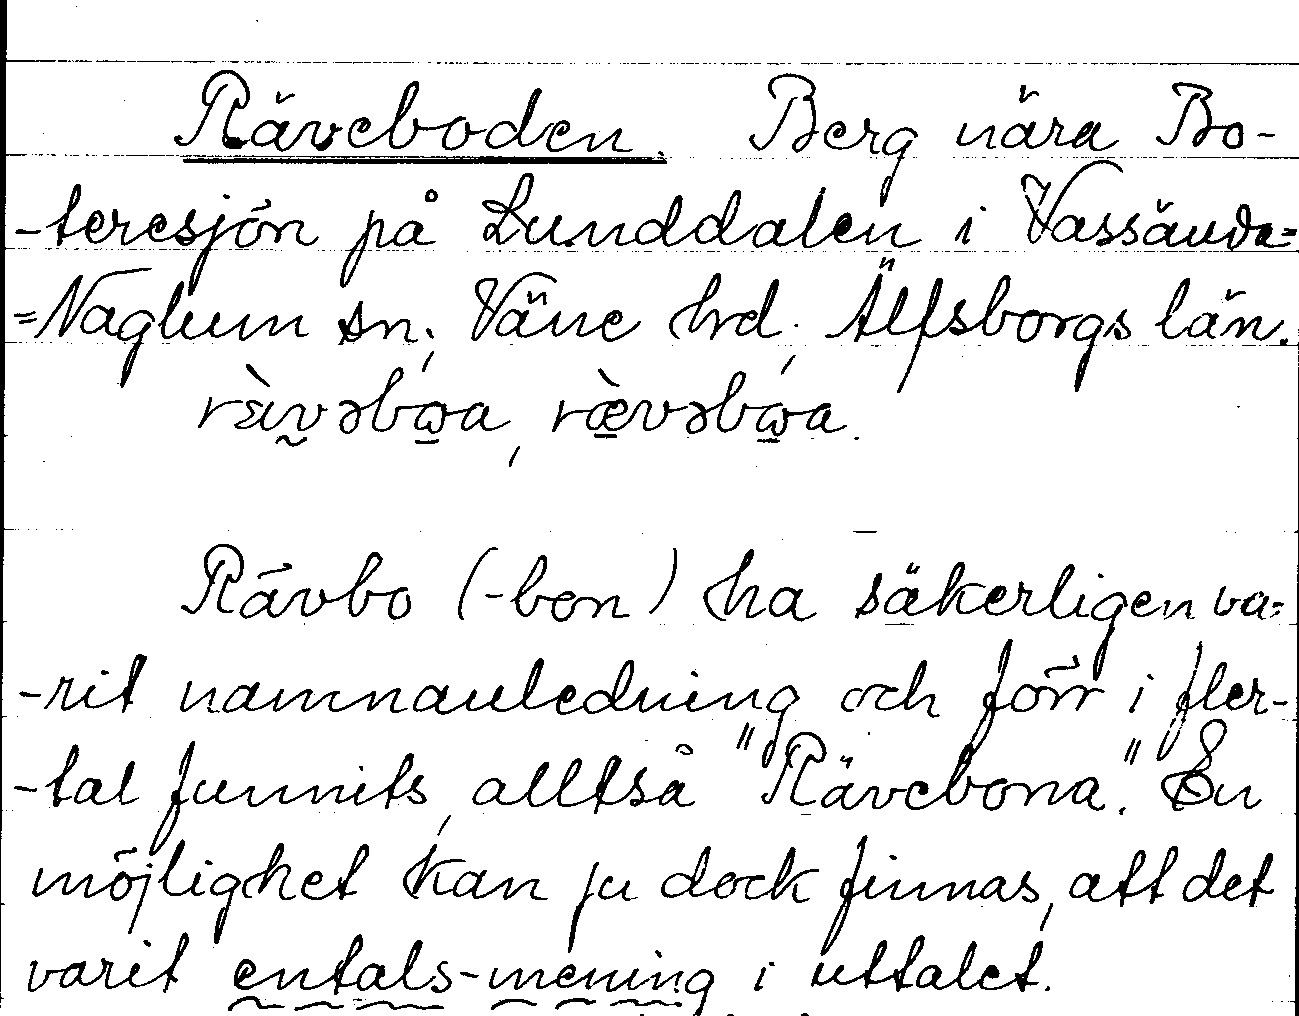 Räveboden. Berg nära Bo-
-teresjön på Lunddalen i Vassända=
=Naglum sn, Väne hrd, Älfsborgs län.
rὲi̯vəbω̲a, ræ̲̀vəbω̲a.
Rävbo (-bon) ha säkerligen va=
-rit namnanledning och förr i fler-
-tal funnits, alltså "Rävebona". En
möjlighet kan ju dock finnas, att det
varit entals-mening i uttalet.